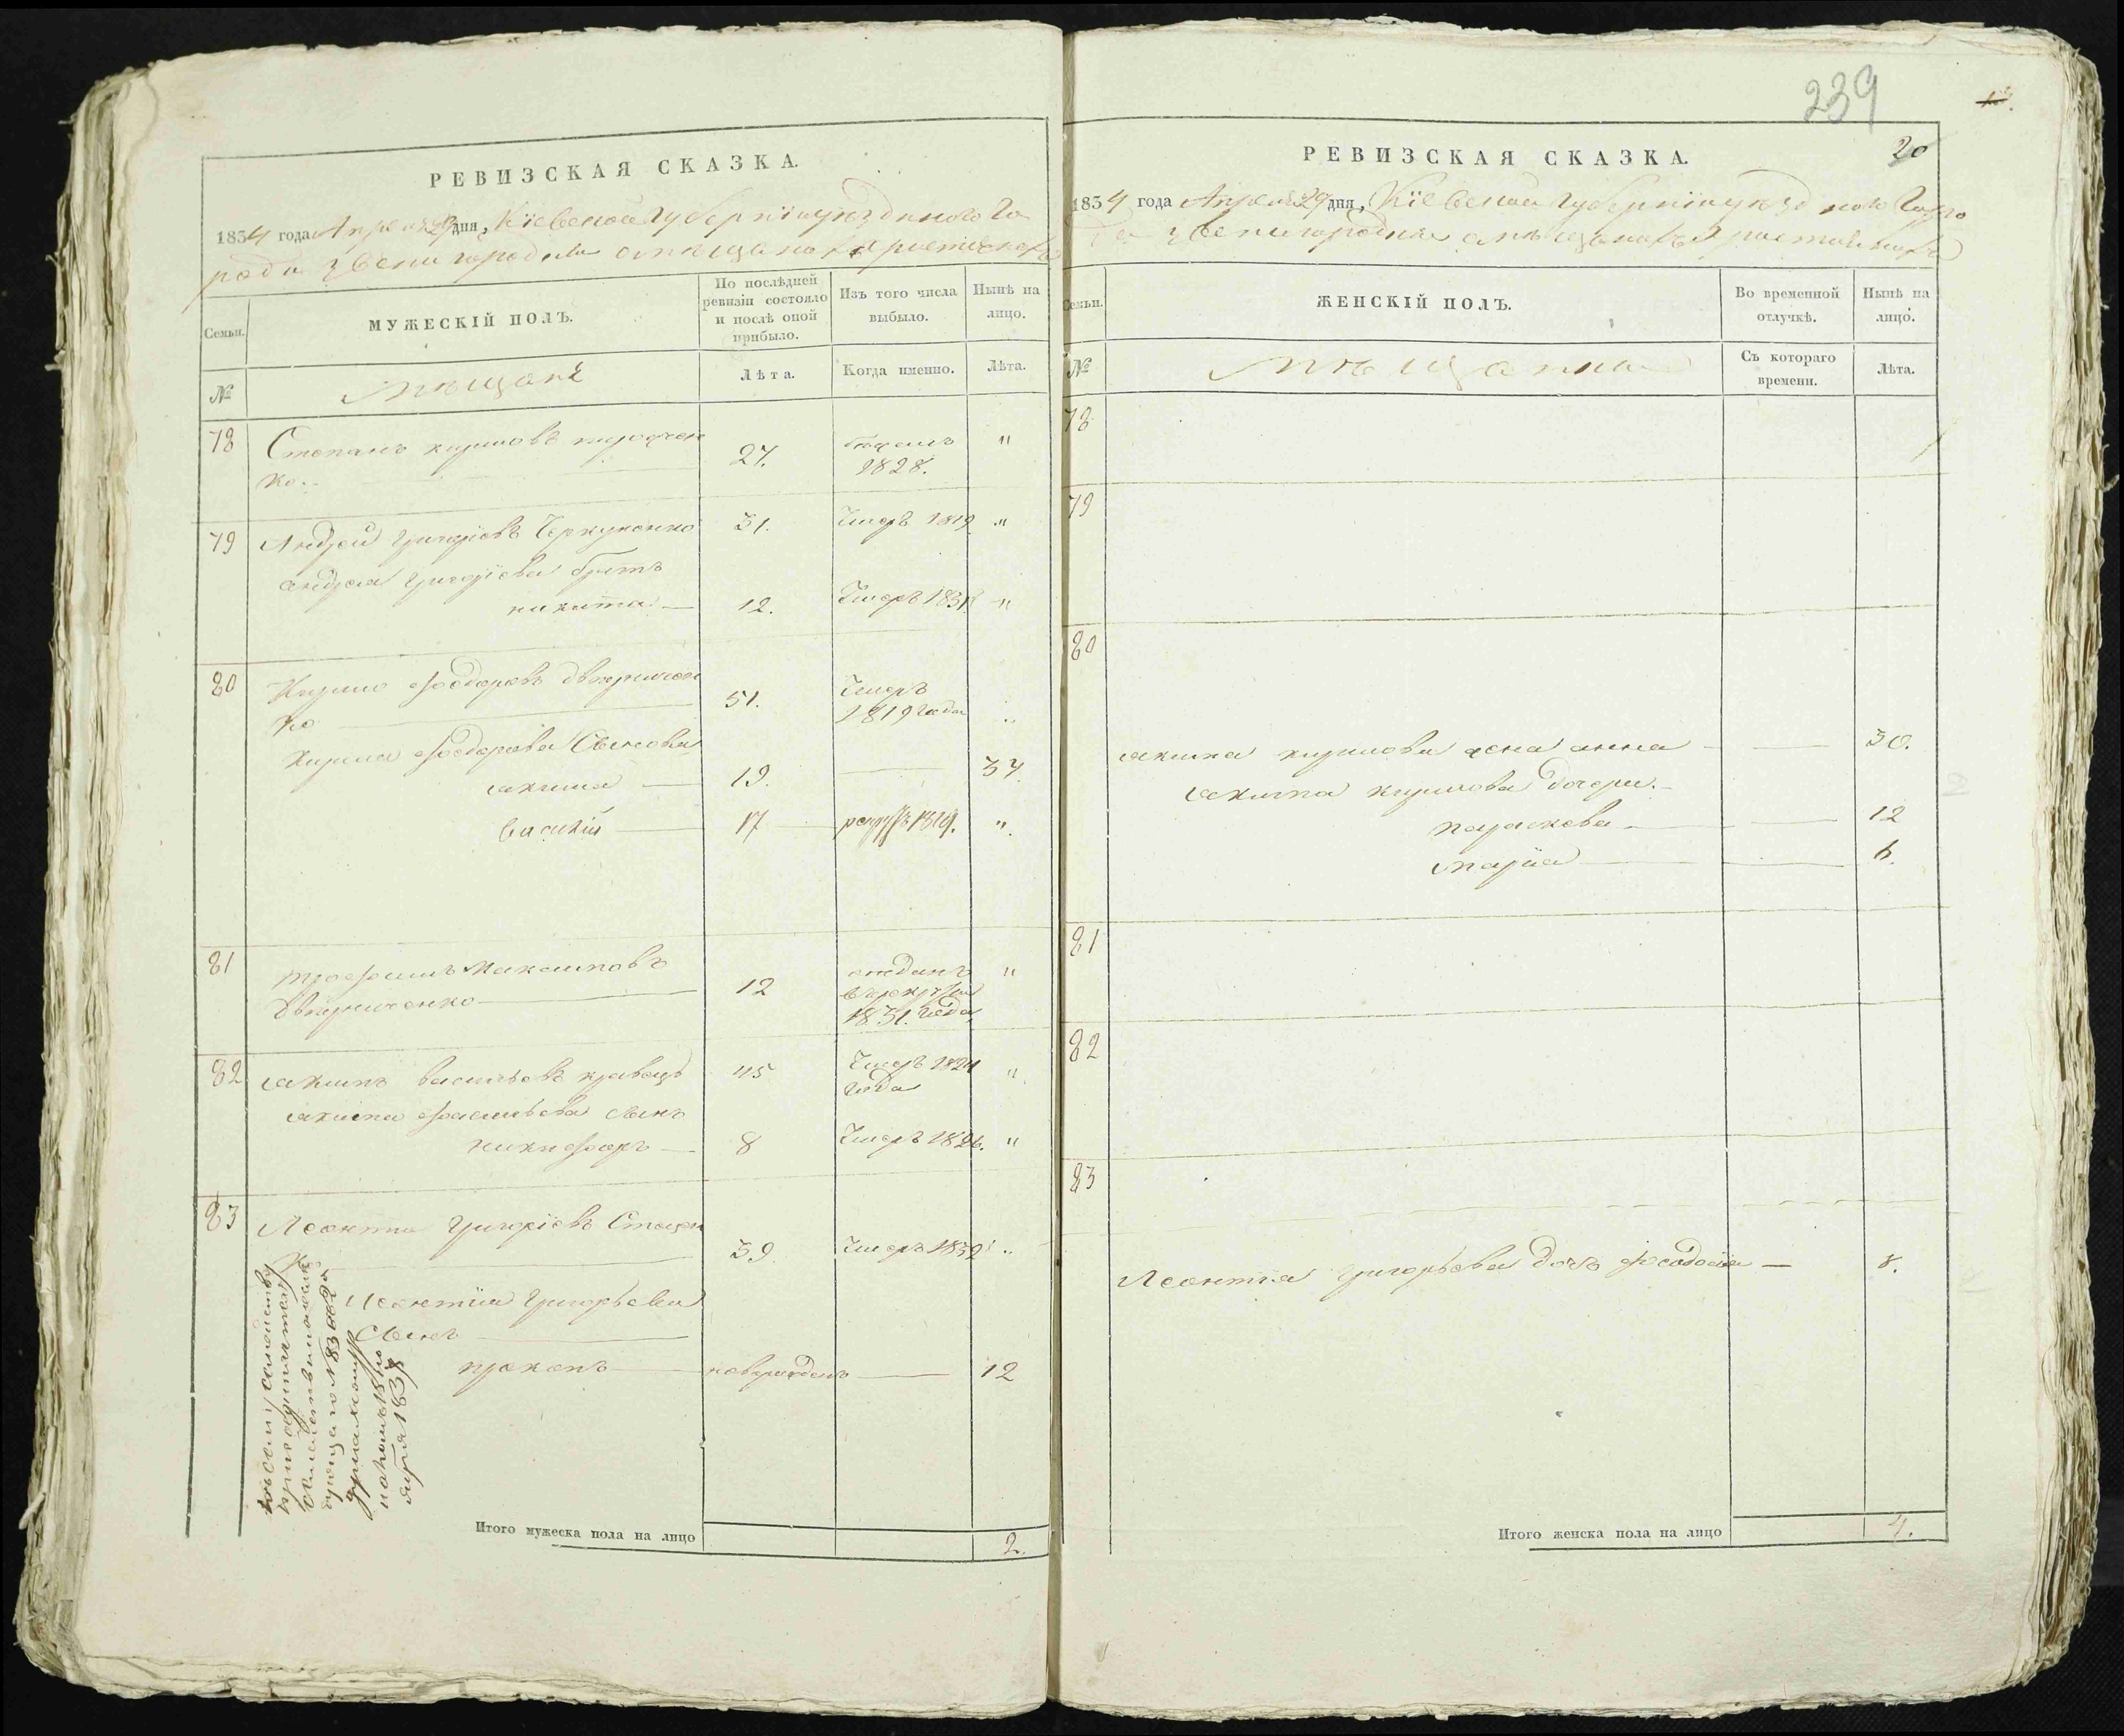 РЕВИЗСКАЯ СКАЗКА.
1834 года Апреля 29 дня, Кіевской Губерніи уѣздного Го
рода Звенигородки о мѣщанахъ христіанахъ
Семьи.
МУЖЕСКІЙ ПОЛЪ.
По послѣдней ревизіи состояло и послѣ оной прибыло.
Изъ того числа выбыло.
Нынѣ на лицо.
№
мѣщане
Лѣта.
Когда именно.
Лѣта.
78
Степанъ кириловъ
ко
27.
бѣжалъ
1828.
"
79
Андрей григоріевъ
31.
Умеръ 1819
"
андрея григоріева братъ
никита
12.
Умеръ 1831
"
80
Кирило Ѳедоровъ Дверничен
ко
51.
Умеръ
1819 года
"
Кирила Ѳедорова Сыновья
якимъ
19.
34.
василій
17
рекрутъ 1819.
"
81
трофимъ Максимовъ
Дверниченко
12
отданъ
в рекруты
1831. года
"
82
якимъ васильевъ кравецъ
45
Умеръ 1824
года
"
якима васильева сынъ
никифоръ
8
Умеръ 1826.
"
83
Леонтій Григоріевъ Стецен
ко
39.
Умеръ 1832
"
Леонтія Григорьева
Сынъ
прокопъ
новорожденъ
12
Итого мужеска пола на лицо
2.
239
20
РЕВИЗСКАЯ СКАЗКА.
1834 года Апреля 29 дня, Кіевской Губерніи уѣздного Горо
да Звенигородки о мѣщанахъ христіанахъ
Семьи.
ЖЕНСКІЙ ПОЛЪ.
Во временной отлучкѣ.
Нынѣ на лицо.
№
мѣщанки
Съ котораго времени.
Лѣта.
78
79
80
якима кирилова жена анна
30.
якима кирилова дочери.
параскева
12
марія
6.
81
82
83
Леонтія григорьева дочь феодосія
8.
Итого женска пола на лицо
4.